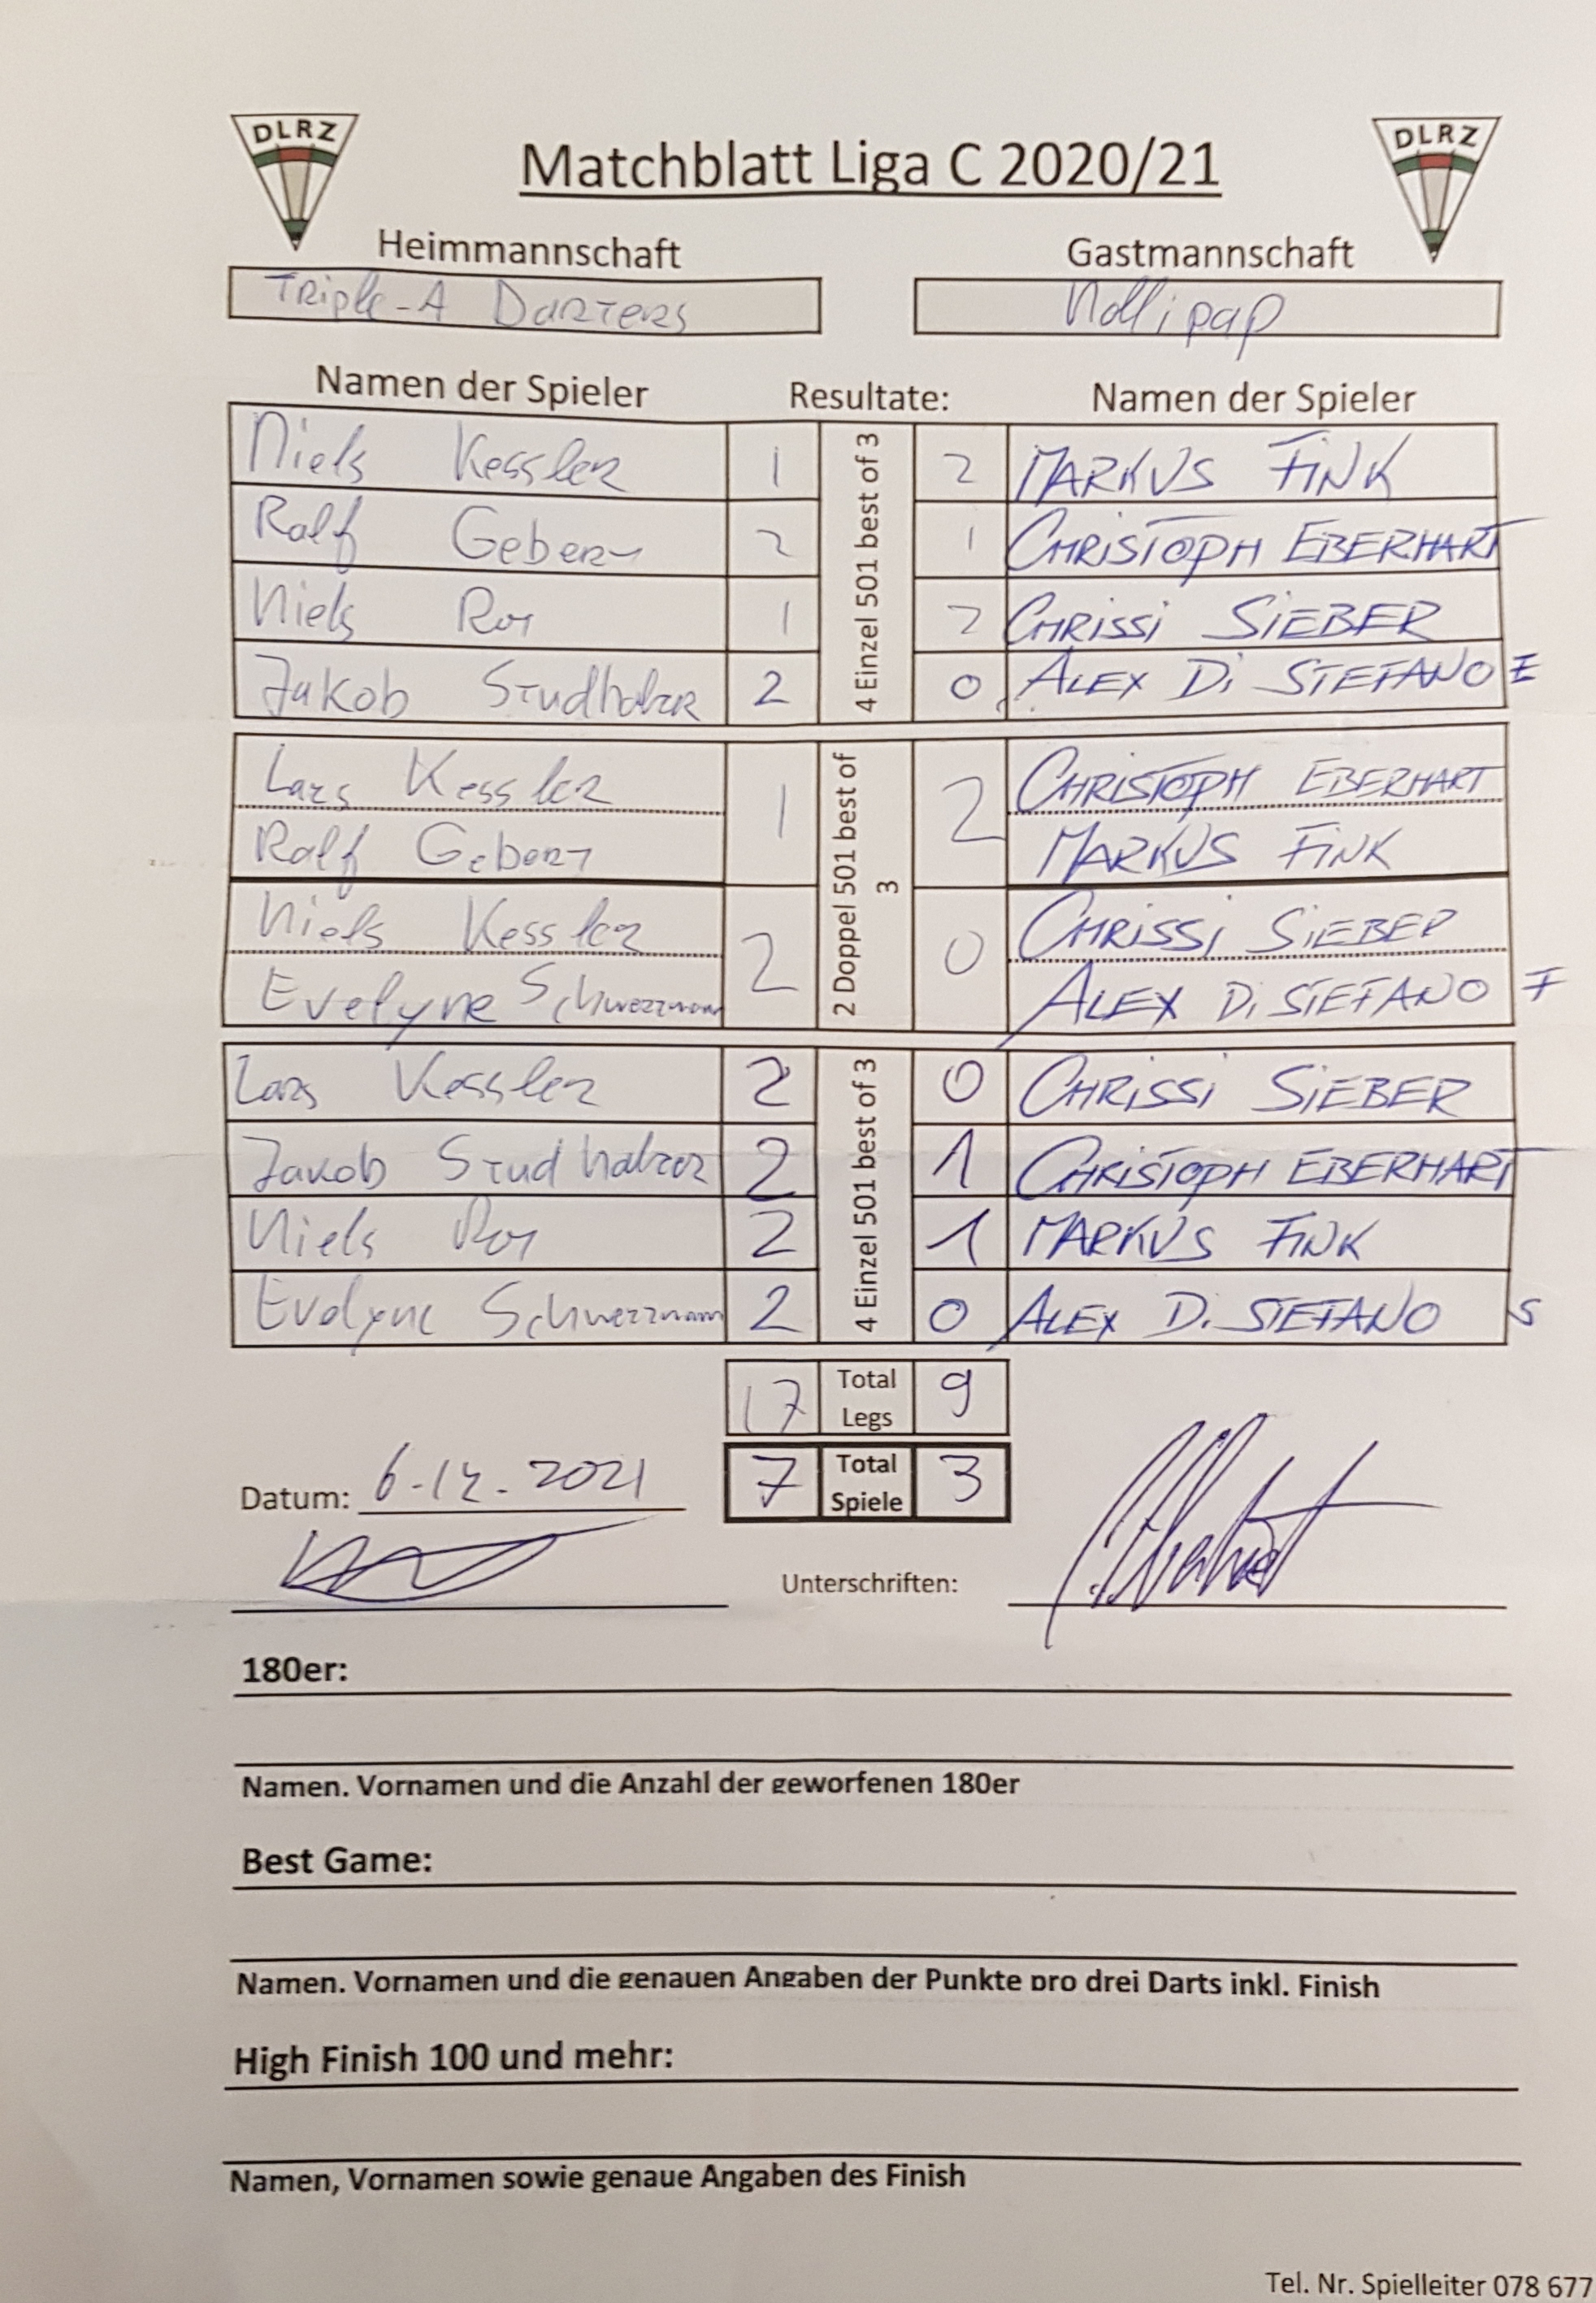 DLRZ Matchblatt Liga C 2020/21 DLRZ
Heimmannschaft Gastmannschaft
Triple-A Darters Nollipap
Namen der Spieler Resultate: Namen der Spieler
4 Einzel 501 best of 3
Niels Kessler 1 2 MARKUS FINK
Ralf Gebert 2 1 CHRISTOPH EBERHART
Niels Roy 1 2 CHRISSI SIEBER
Jakob Studhalter 2 0 ALEX Di STEFANO E
2 Doppel 501 best of 3
Lars Kessler 1 2 CHRISTOPH EBERHART
Ralf Gebert MARKUS FINK
Niels Kessler 2 0 CHRISSI SIEBER
Evelyne Schwerzmann ALEX Di STEFANO F
4 Einzel 501 best of 3
Lars Kessler 2 0 CHRISSI SIEBER
Jakob Studhalter 2 1 CHRISTOPH EBERHART
Niels Roy 2 1 MARKUS FINK
Evelyne Schwerzmann 2 0 ALEX Di STEFANO S
17 Total Legs 9
Datum: 6.12.2021 7 Total Spiele 3
Unterschriften:
180er:
Namen. Vornamen und die Anzahl der geworfenen 180er
Best Game:
Namen. Vornamen und die genauen Angaben der Punkte pro drei Darts inkl. Finish
High Finish 100 und mehr:
Namen, Vornamen sowie genaue Angaben des Finish
Tel. Nr. Spielleiter 078 677